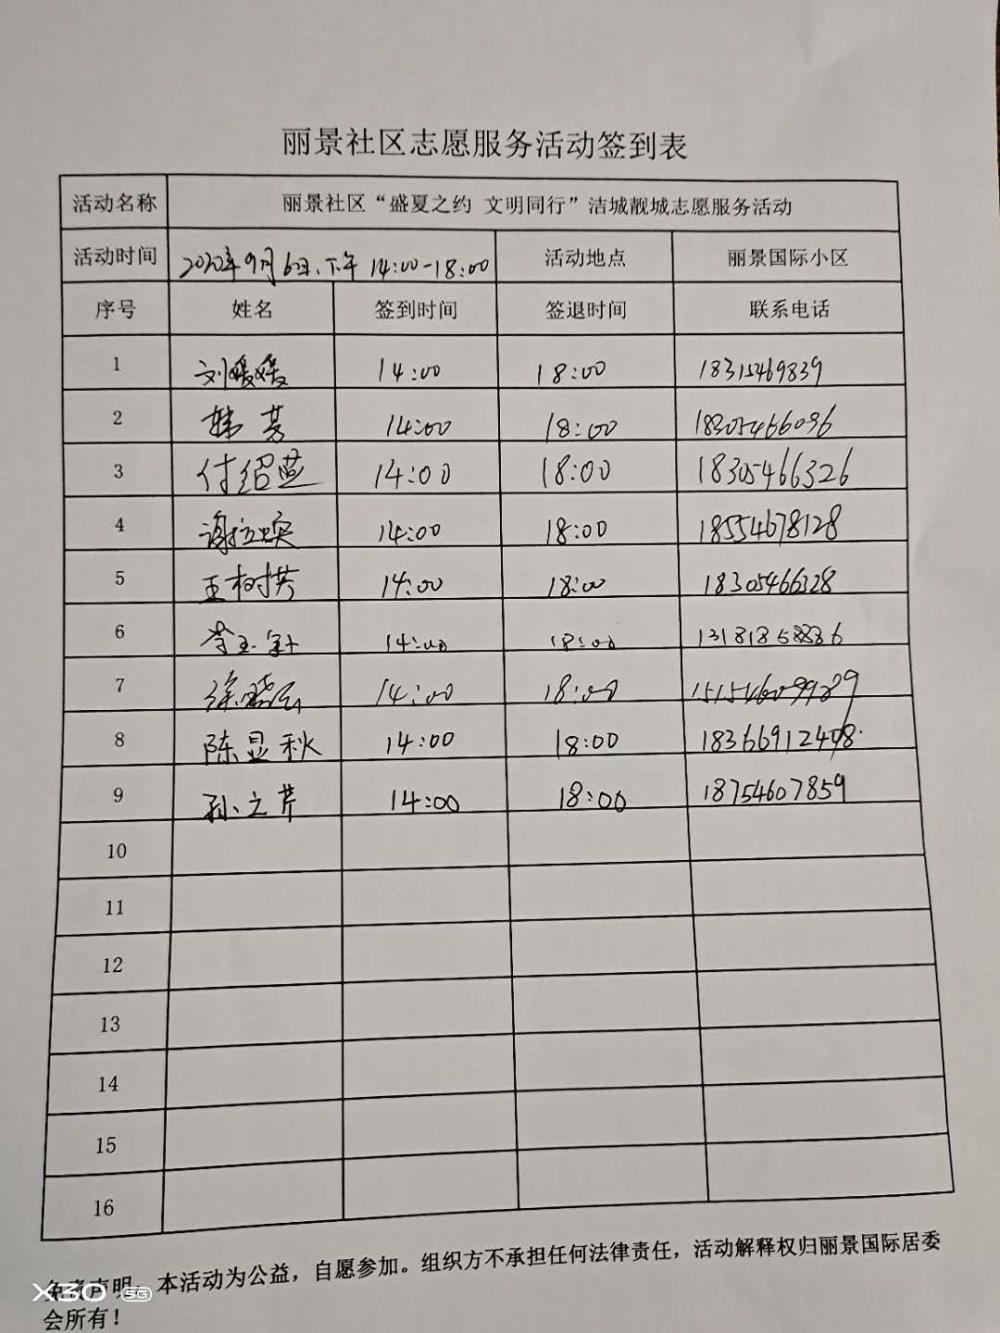 丽景社区志愿服务活动签到表
活动名称 丽景社区“盛夏之约 文明同行”洁城靓城志愿服务活动
活动时间 2020年9月6日、下午 14:00-18:00 活动地点 丽景国际小区
序号 姓名 签到时间 签退时间 联系电话
1 刘媛媛 14:00 18:00 18315469839
2 韩芳 14:00 18:00 18305466096
3 付绍蓝 14:00 18:00 18305466326
4 14:00 18:00 18554678128
5 王树芳 14:00 18:00 18305466328
6 14:00 18:00 13181858886
7 徐晓云 14:00 18:00
8 陈显秋 14:00 18:00 18366912408
9 孙之芹 14:00 18:00 18754607859
10
11
12
13
14
15
16
免责声明：本活动为公益，自愿参加。组织方不承担任何法律责任，活动解释权归丽景国际居委
会所有！
X30 5G